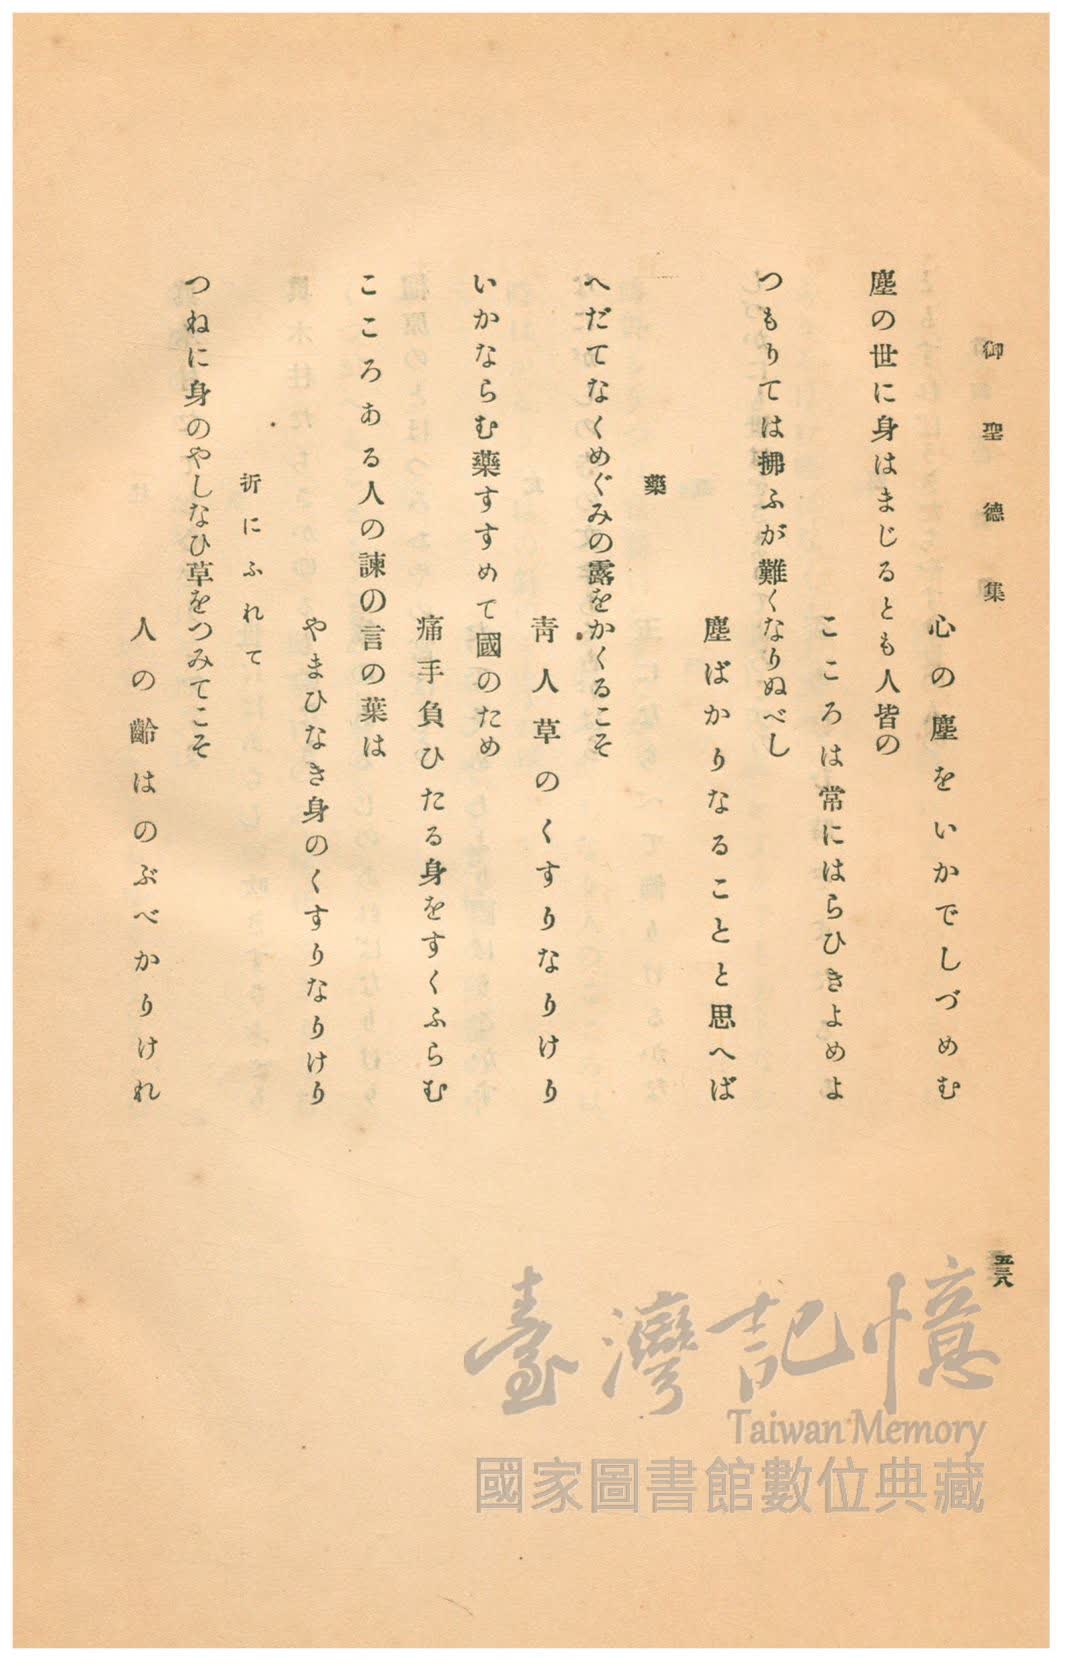 御聖德集
心の塵をいかでしづめむ
塵の世に身はまじるとも人皆の
こころは常にはらひきよめよ
つもりては拂ふが難くなりぬべし
塵ばかりなることと思へば
藥
へだてなくめぐみの露をかくるこそ
靑人草のくすりなりけり
いかならむ藥すすめて國のため
痛手負ひたる身をすくふらむ
こころある人の諫の言の葉は
やまひなき身のくすりなりけり
折にふれて
つねに身のやしなひ草をつみてこそ
人の齡はのぶべかりけれ
五三八
臺灣記憶
Taiwan Memory
國家圖書館數位典藏